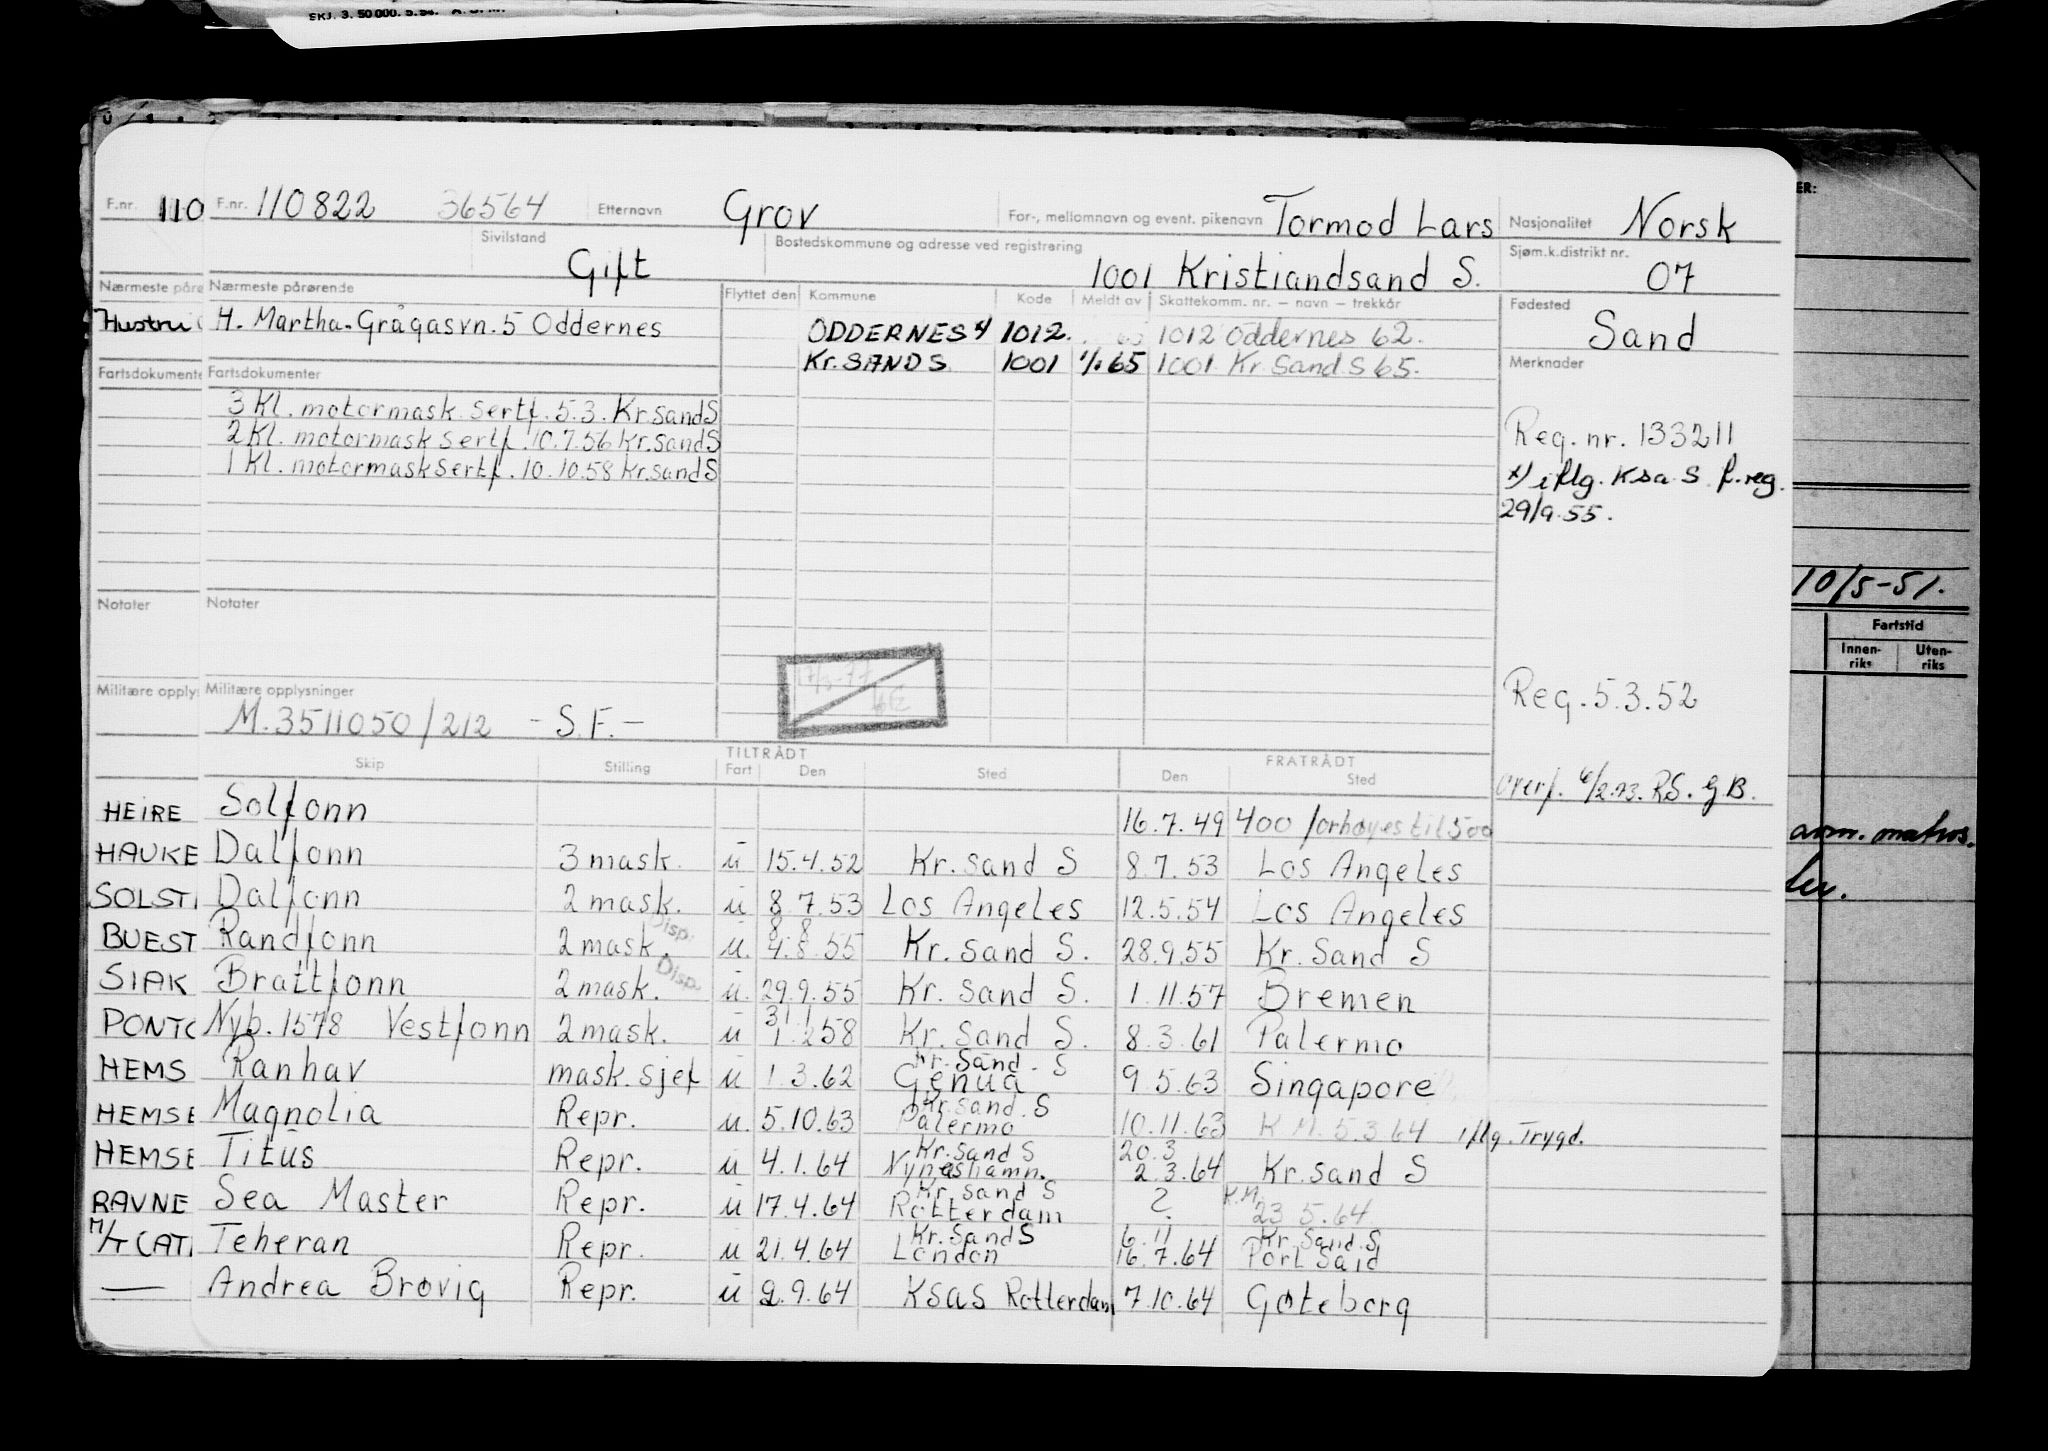 SKJ. 3. 50 000. 5.54. A. S. M.
F.nr. 110 F.nr. 110822 36564 Etternavn Grov For-, mellomnavn og event. pikenavn Tormod Lars Nasjonalitet Norsk
Sivilstand Gift Bostedskommune og adresse ved registrering 1001 Kristiandsand S. Sjøm.k.distrikt nr. 07
Nærmeste påre Nærmeste pårørende Flyttet den Kommune Kode Meldt av Skattekomm. nr. – navn – trekkår Fødested Sand
Hustru H. Martha. Grågåsvn. 5 Oddernes ODDERNES 4 1012. 1012 Oddernes 62.
Kr. SAND S. 1001 1/1 65 1001 Kr. Sand. S 65. Merknader
Fartsdokumente Fartsdokumenter
3 Kl. motormask. sertf. 5.3. Kr.sand S
2 Kl. motormask sertf. 10.7.56 Kr.sand S
1 Kl. motormask sertf. 10.10.58 Kr.sand S
Reg. nr. 133211
x) iflg. Ksa. S f. reg.
29/9.55.
10/5-51.
Notater Notater
Fartstid
Innen-riks Uten-riks
Militære opply Militære opplysninger
M. 3511050/212 - S.F. -
Reg. 5.3.52
TILTRÅDT FRATRÅDT
Skip Stilling Fart Den Sted Den Sted
overf. 6/2.73. RS. G.B.
HEIRE Solfonn 16.7.49 400 forhøyes til 500
anm. matros.
HAUKE Dalfonn 3 mask. u 15.4.52 Kr. sand S 8.7.53 Los Angeles
SOLSTI Dalfonn 2 mask. u 8.7.53 Los Angeles 12.5.54 Los Angeles
BUEST Randfonn 2 mask. Disp. u. 8 8 4.8.55 Kr. sand S. 28.9.55 Kr. Sand S
SIAK Brattfonn 2 mask. Disp. u. 29.9.55 Kr. Sand S. 1.11.57 Bremen
PONTO Nyb. 1578 Vestfonn 2 mask. u 31 1 1.2.58 Kr. Sand S. 8.3.61 Palermo
HEMS Ranhav mask. sjef u 1.3.62 Kr. Sand. S Genua 9.5.63 Singapore
HEMSE Magnolia Repr. u. 5.10.63 Kr. sand. S Palermo 10.11.63 K.M. 5.3.64 iflg. Trygd.
HEMSE Titus Repr. u 4.1.64 Kr. sand S Nynashamn. 20.3 2.3.64 Kr. sand S
RAVNE Sea Master Repr. u 17.4.64 Kr. sand S Rotterdam ? K.M. 23 5.64
M/T CATI Teheran Repr. u 21.4.64 Kr. Sand S London 6.11 16.7.64 Kr. Sand. S Port Said
— Andrea Brøvig Repr. u 2.9.64 KSAS Rotterdam 7.10.64 Gøteborg